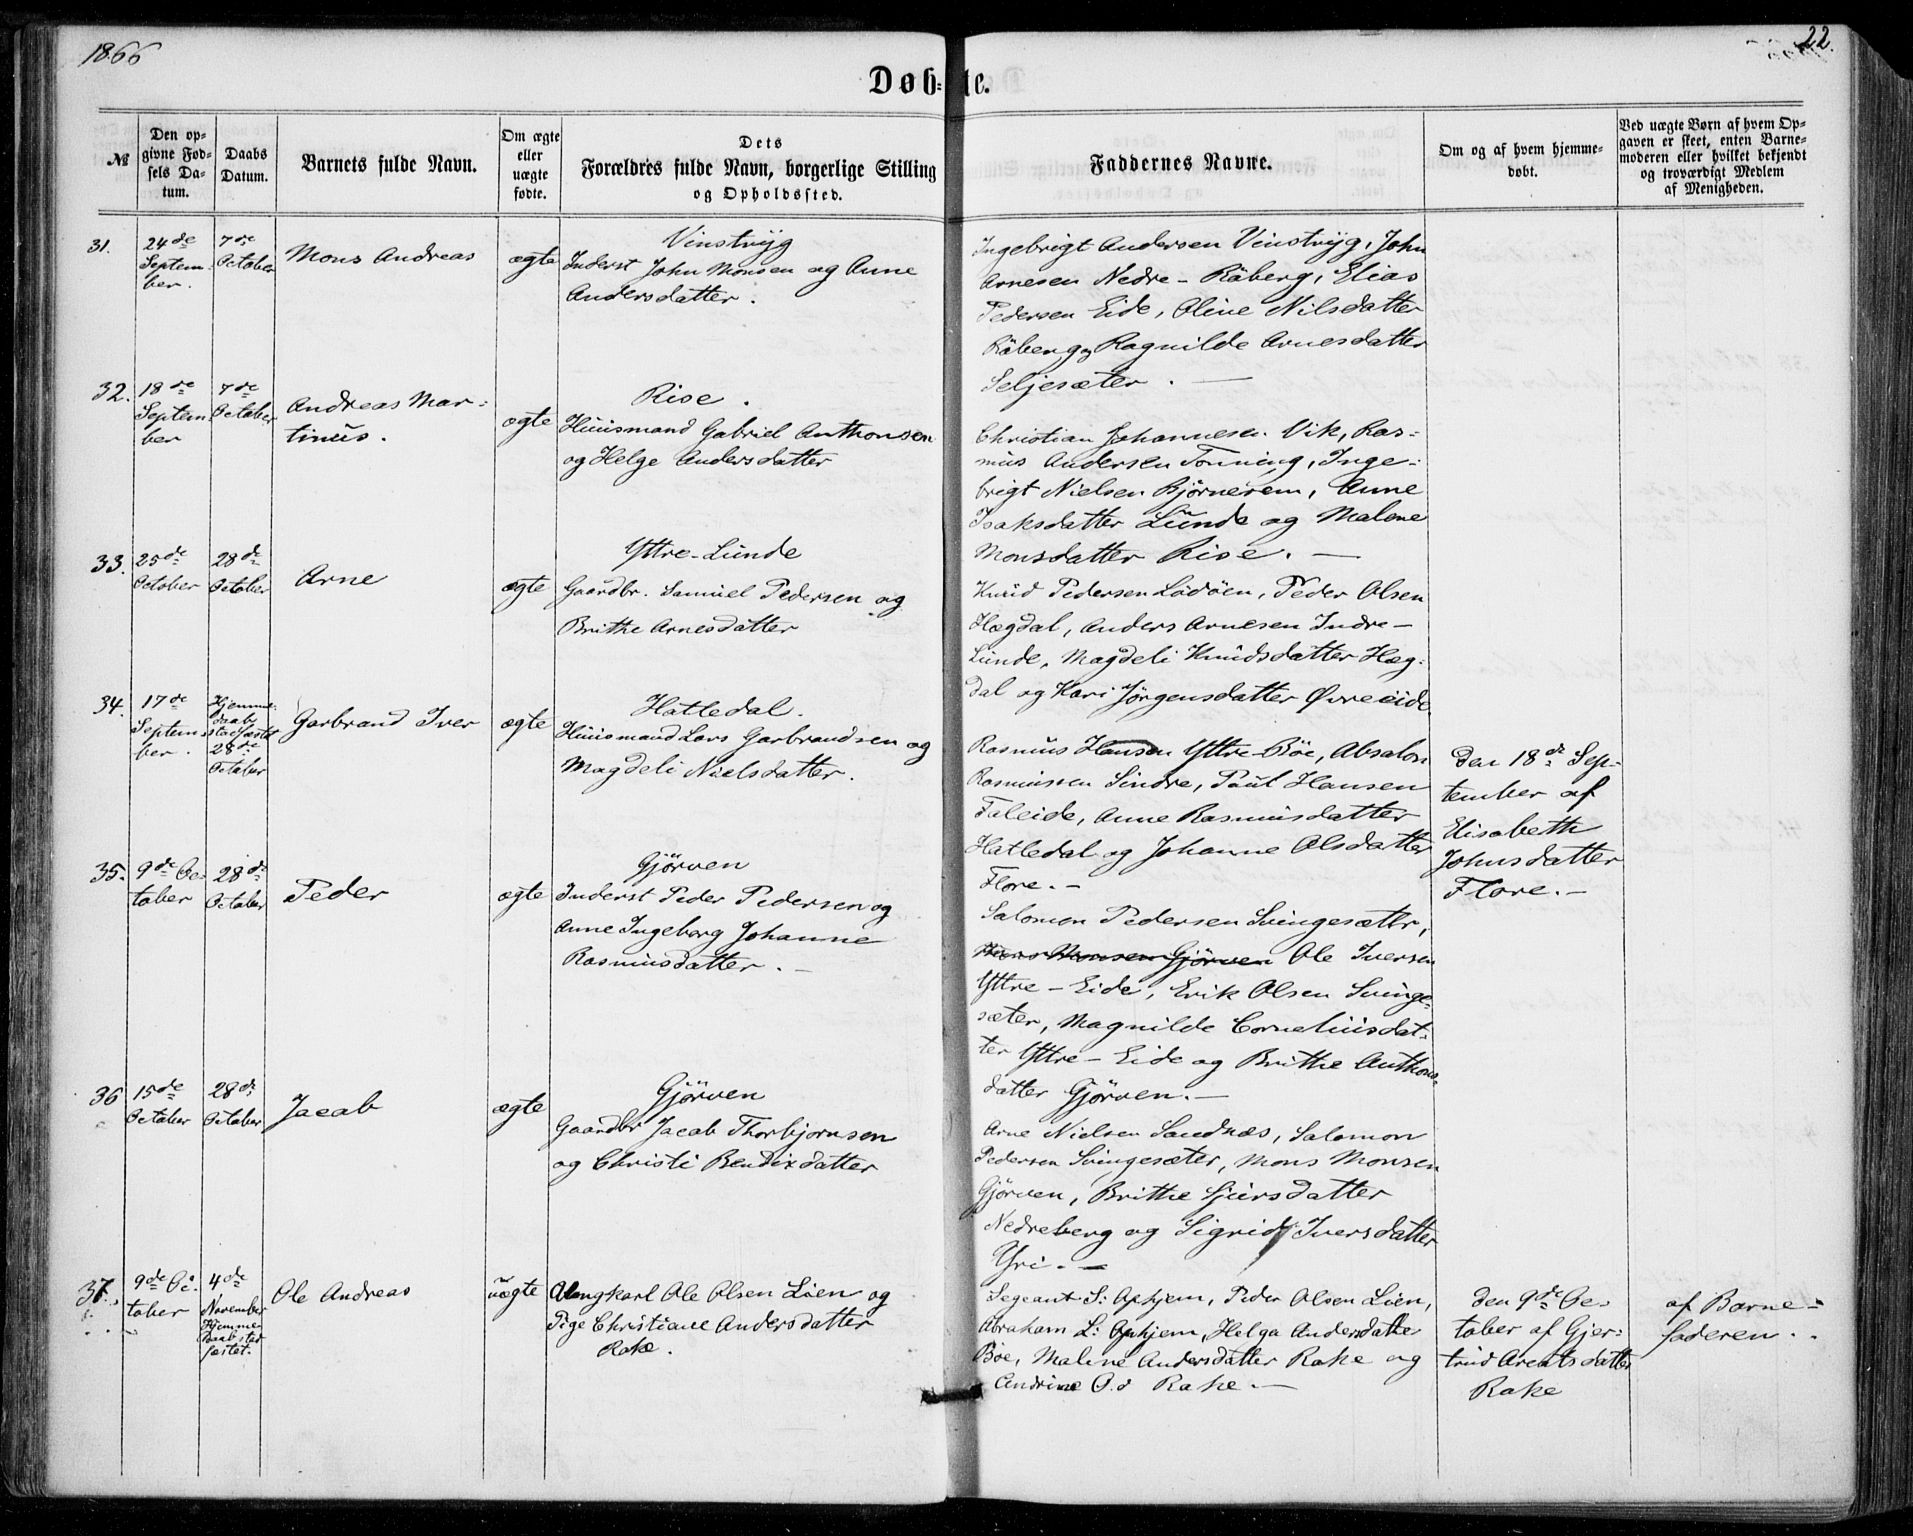 1866
22
Døb=te.
№
Den op=
givne Fød=
sels Da=
tum.
Daabs
Datum.
Barnets fulde Navn.
Om ægte
eller
uægte
fødte.
Dets
Forældres fulde Navn, borgerlige Stilling
og Opholdssted.
Faddernes Navne.
Om og af hvem hjemme=
døbt.
Ved uægte Børn af hvem Op=
gaven er skeet, enten Barne=
moderen eller hvilket bekjendt
og troværdigt Medlem
af Menigheden.
31.
24de
Septem-
ber.
7de
October
Mons Andreas
ægte
Vinstryg
Inderst John Monsen og Anne
Andersdatter.
Ingebrigt Andersen Vinstryg, John
Arnesen Nedre-Råberg, Elias
Pedersen Eide, Oline Nilsdatter
Råberg og Ragnilde Arnesdatter
Seljesæter. —
32.
18de
Septem
ber
7de
October
Andreas Mar=
tinus.
ægte
Rise.
Huusmand Gabriel Anthonsen
og Helge Andersdatter
Christian Johannesen Vik, Ras=
mus Andersen Tonning, Inge=
brigt Nielsen Bjørnerem, Anne
Isaksdatter Lunde og Malene
Monsdatter Rise. —
33.
25de
October
28de
October
Arne
ægte
Yttre-Lunde
Gaardbr. Samuel Pedersen og
Brithe Arnesdatter
Knud Pedersen Lødøen, Peder Olsen
Hægdal, Anders Arnesen Indre-
Lunde, Magdeli Knudsdatter Hæg=
dal og Kari Jørgensdatter Øvreeide
34.
17de
Septem-
ber.
Hjemme-
daab
stadfæstet
28de
October
Garbrand Iver
ægte
Hatledal.
Huusmand Lars Garbrandsen og
Magdeli Nielsdatter.
Rasmus Hansen Yttre-Bøe, Absalon
Rasmussen Sindre, Paul Hansen
Faleide, Anne Rasmusdatter
Hatledal og Johanne Olsdatter
Flore. —
Den 18de Sep-
tember af
Elisabeth
Johnsdatter
Flore. —
35.
9de Oc-
tober
28de
October
Peder
ægte
Gjørven
Inderst Peder Pedersen og
Anne Ingeborg Johanne
Rasmusdatter. —
Salomon Pedersen Svingesæter,
Mons Monsen Gjørven Ole Iversen
Yttre-Eide, Erik Olsen Svinge=
sæter, Magnilde Corneliusdat=
ter Yttre-Eide og Brithe Anthons=
datter Gjørven. —
36
15de
October
28de
October
Jacob
ægte
Gjørven
Gaardbr Jacob Thorbjornsen
og Christi Bendixdatter
Arne Nielsen Sandnæs, Salomon
Pedersen Svingesæter, Mons Monsen
Gjørven, Brithe Sjursdatter
Nedreberg og Sigrid Iversdatter
Yri. —
37.
9de Oc-
tober
4de
November
Hjemme-
daab stad
fæstet.
Ole Andreas
uægte
Ungkarl Ole Olsen Løen og
Pige Christiane Andersdatter
Rake.
Segeant S: Aphjem, Peder Olsen Løen,
Abraham L: Aphjem, Helga Andersdatter
Bøe, Malene Andersdatter Rake og
Andrine O.d Rake. —
Den 9de Oc-
tober af Gjer=
trud Arentsdatter
Rake
af Barne=
faderen.